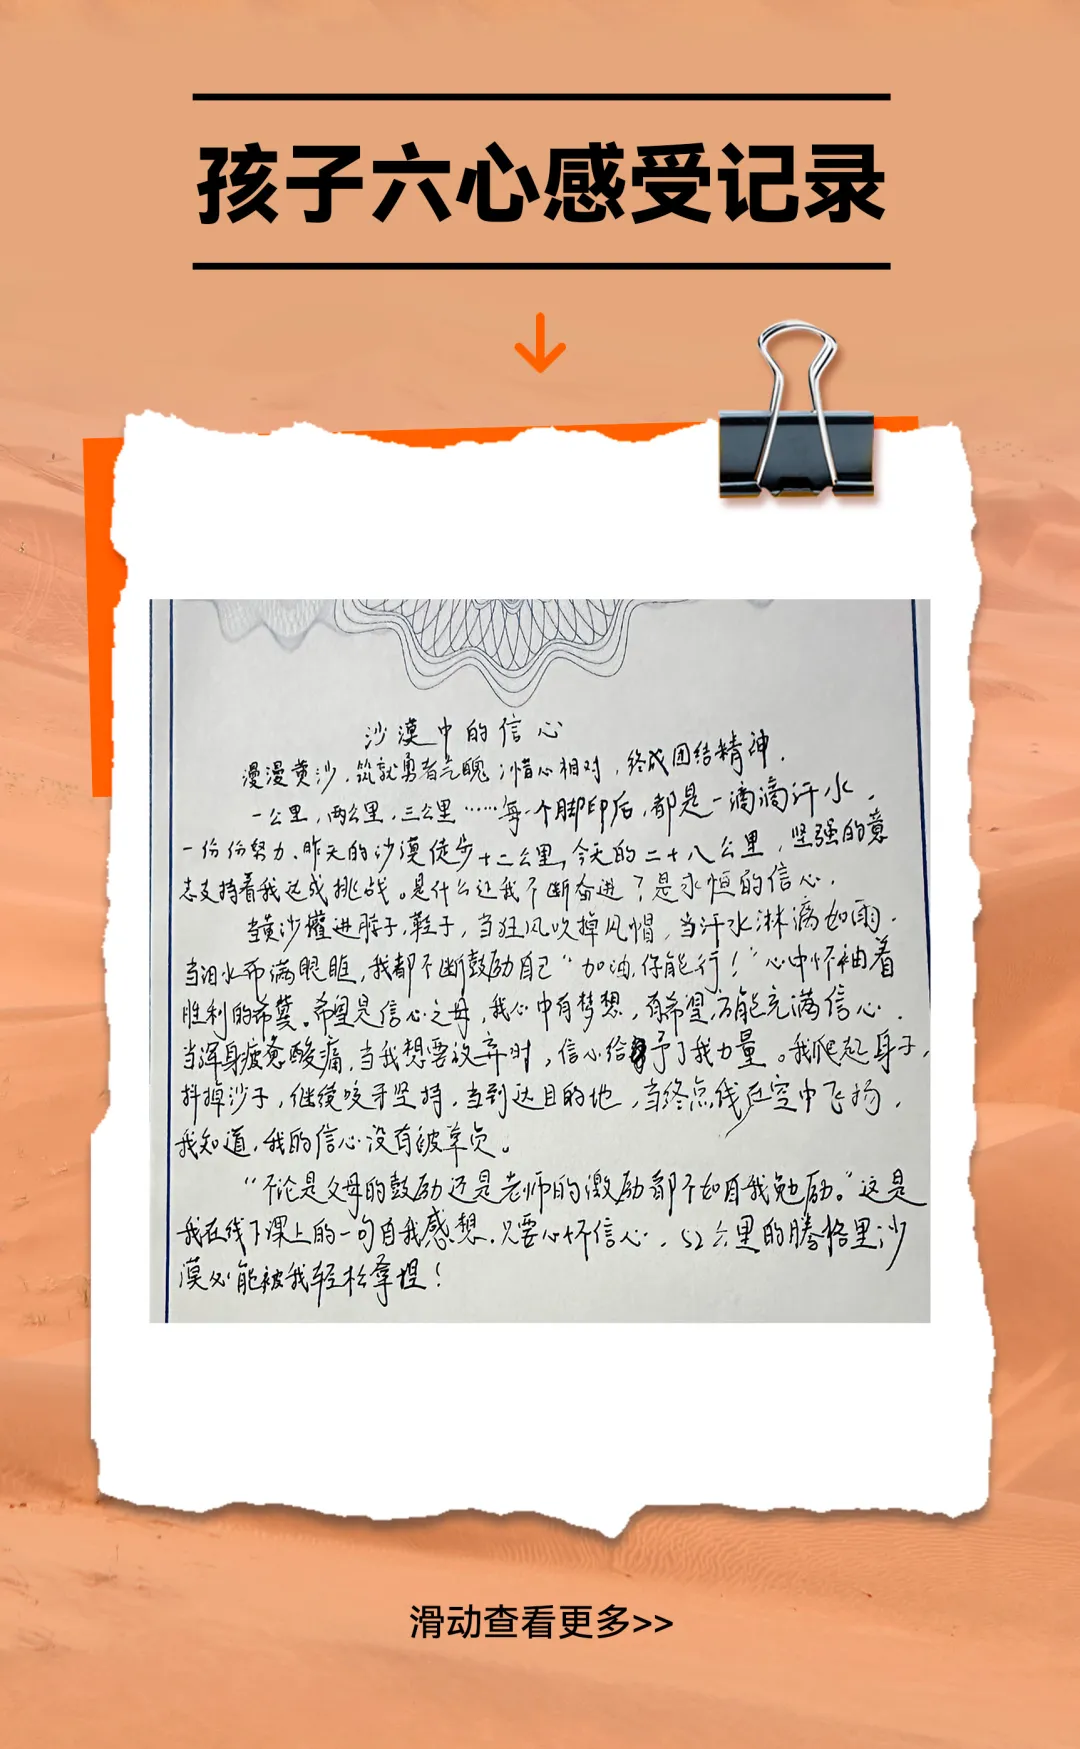 孩子六心感受记录
沙漠中的信心
漫漫黄沙,筑就勇者气魄,惜心相对,终成团结精神.
一公里,两公里,三公里……每一个脚印后,都是一滴滴汗水,
一份份努力、昨天的沙漠徒步十二公里,今天的二十八公里,坚强的意
志支持着我达成挑战。是什么让我不断奋进?是永恒的信心.
当黄沙灌进脖子,鞋子,当狂风吹掉风帽,当汗水淋漓如雨.
当泪水布满眼眶,我都不断鼓励自己"加油,你能行!"心中怀袖着
胜利的希冀。希望是信心之母,我心中有梦想,有希望,方能充满信心.
当浑身疲惫酸痛,当我想要放弃时,信心给予了我力量。我爬起身子,
抖掉沙子,继续咬牙坚持,当到达目的地,当终点线在空中飞扬,
我知道,我的信心没有被辜负。
"不论是父母的鼓励还是老师的激励都不如自我勉励。"这是
我在线下课上的一句自我感想.只要心怀信心,52公里的腾格里沙
漠必能被我轻松拿捏!
滑动查看更多>>